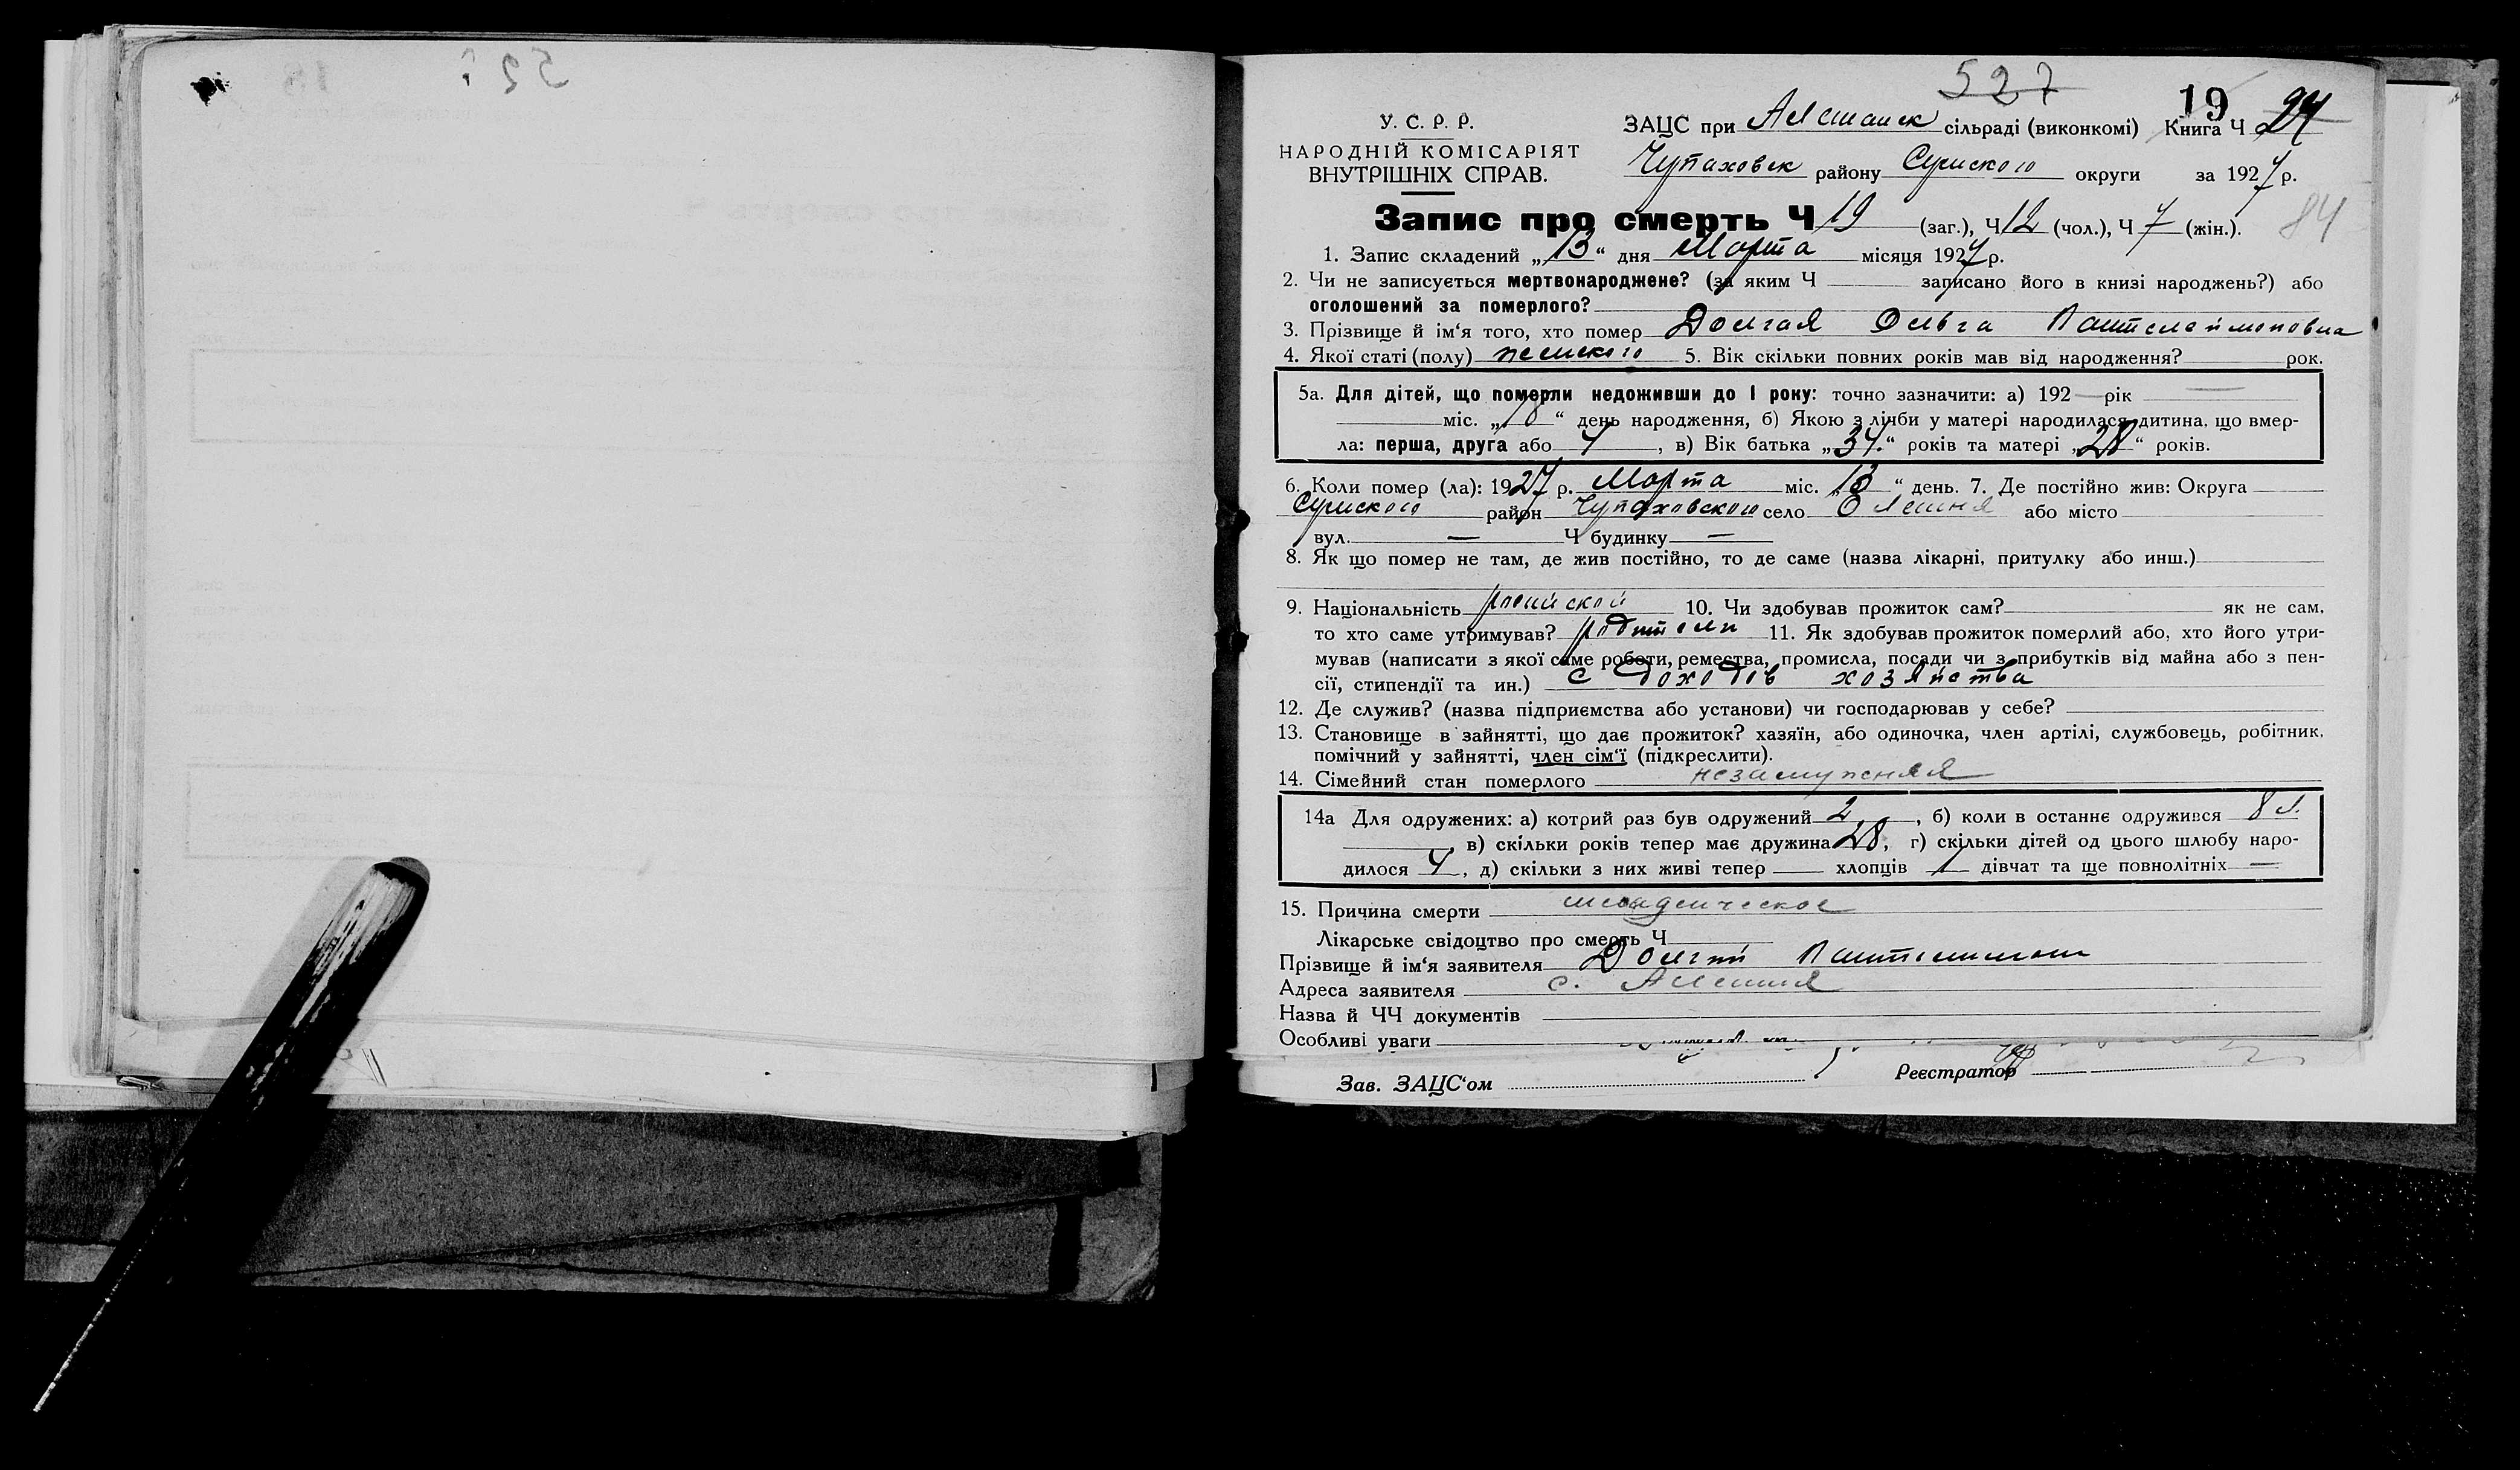 527
19 24
У. С. Р. Р.
НАРОДНІЙ КОМІСАРІЯТ
ВНУТРІШНІХ СПРАВ.
ЗАЦС при Алешанск сільраді (виконкомі) Книга Ч
Чупаховск району Сумского округи за 1927 р.
84
Запис про смерть Ч 19 (заг.), Ч 12 (чол.), Ч 7 (жін.).
1. Запис складений „13“ дня Марта місяця 1927 р.
2. Чи не записується мертвонароджене? (за яким Ч записано його в книзі народжень?) або
оголошений за померлого?
3. Прізвище й ім‘я того, хто помер Долгая Ольга Пантелеймоновна
4. Якої статі (полу) женского 5. Вік скільки повних років мав від народження? рок.
5а. Для дітей, що померли недоживши до 1 року: точно зазначити: а) 192— рік —
міс. „18“ день народження, б) Якою з лічби у матері народилася дитина, що вмер-
ла: перша, друга або 4, в) Вік батька „34“ років та матері „28“ років.
6. Коли помер (ла): 1927 р. Марта міс. „13“ день. 7. Де постійно жив: Округа
Сумского район Чупаховского село Олешня або місто
вул. — Ч будинку —
8. Як що помер не там, де жив постійно, то де саме (назва лікарні, притулку або инш.)
9. Національність 10. Чи здобував прожиток сам? як не сам,
то хто саме утримував? родители 11. Як здобував прожиток померлий або, хто його утри-
мував (написати з якої саме роботи, ремества, промисла, посади чи з прибутків від майна або з пен-
сії, стипендії та ин.) с доходов хозяйства
12. Де служив? (назва підприємства або установи) чи господарював у себе?
13. Становище в зайнятті, що дає прожиток? хазяїн, або одиночка, член артілі, службовець, робітник,
помічний у зайнятті, член сім‘ї (підкреслити).
14. Сімейний стан померлого незамужняя
14а Для одружених: а) котрий раз був одружений 2, б) коли в останнє одружився 8 л.
, в) скільки років тепер має дружина 28, г) скільки дітей од цього шлюбу наро-
дилося 4, д) скільки з них живі тепер хлопців 1 дівчат та ще повнолітніх —
15. Причина смерти младенческое
Лікарське свідоцтво про смерть Ч
Прізвище й ім‘я заявителя Долгий Пантелимон
Адреса заявителя с. Алешня
Назва й ЧЧ документів
Особливі уваги
Зав. ЗАЦС‘ом Реєстратор